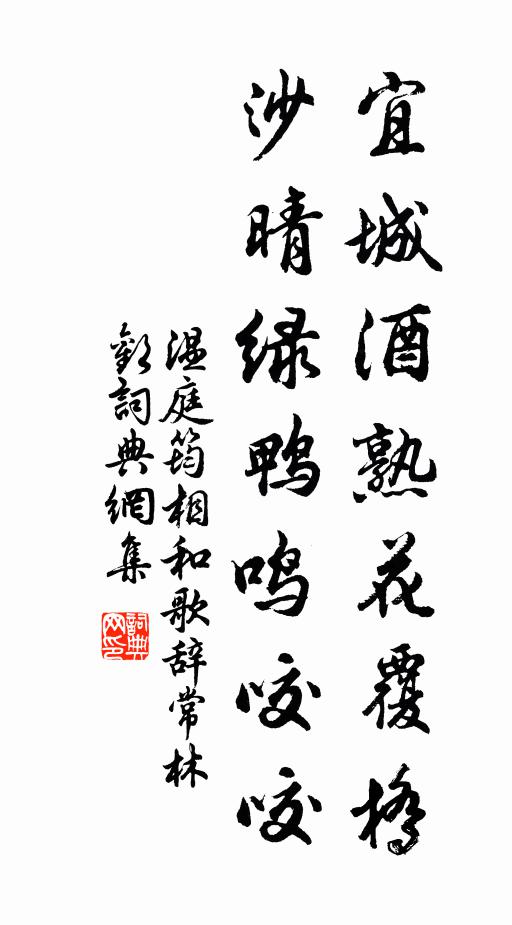 宜城酒熟花覆橋
沙晴绿鸭鸣咬咬
温庭筠相和歌辞常林
歡詞典網集
詞典网印